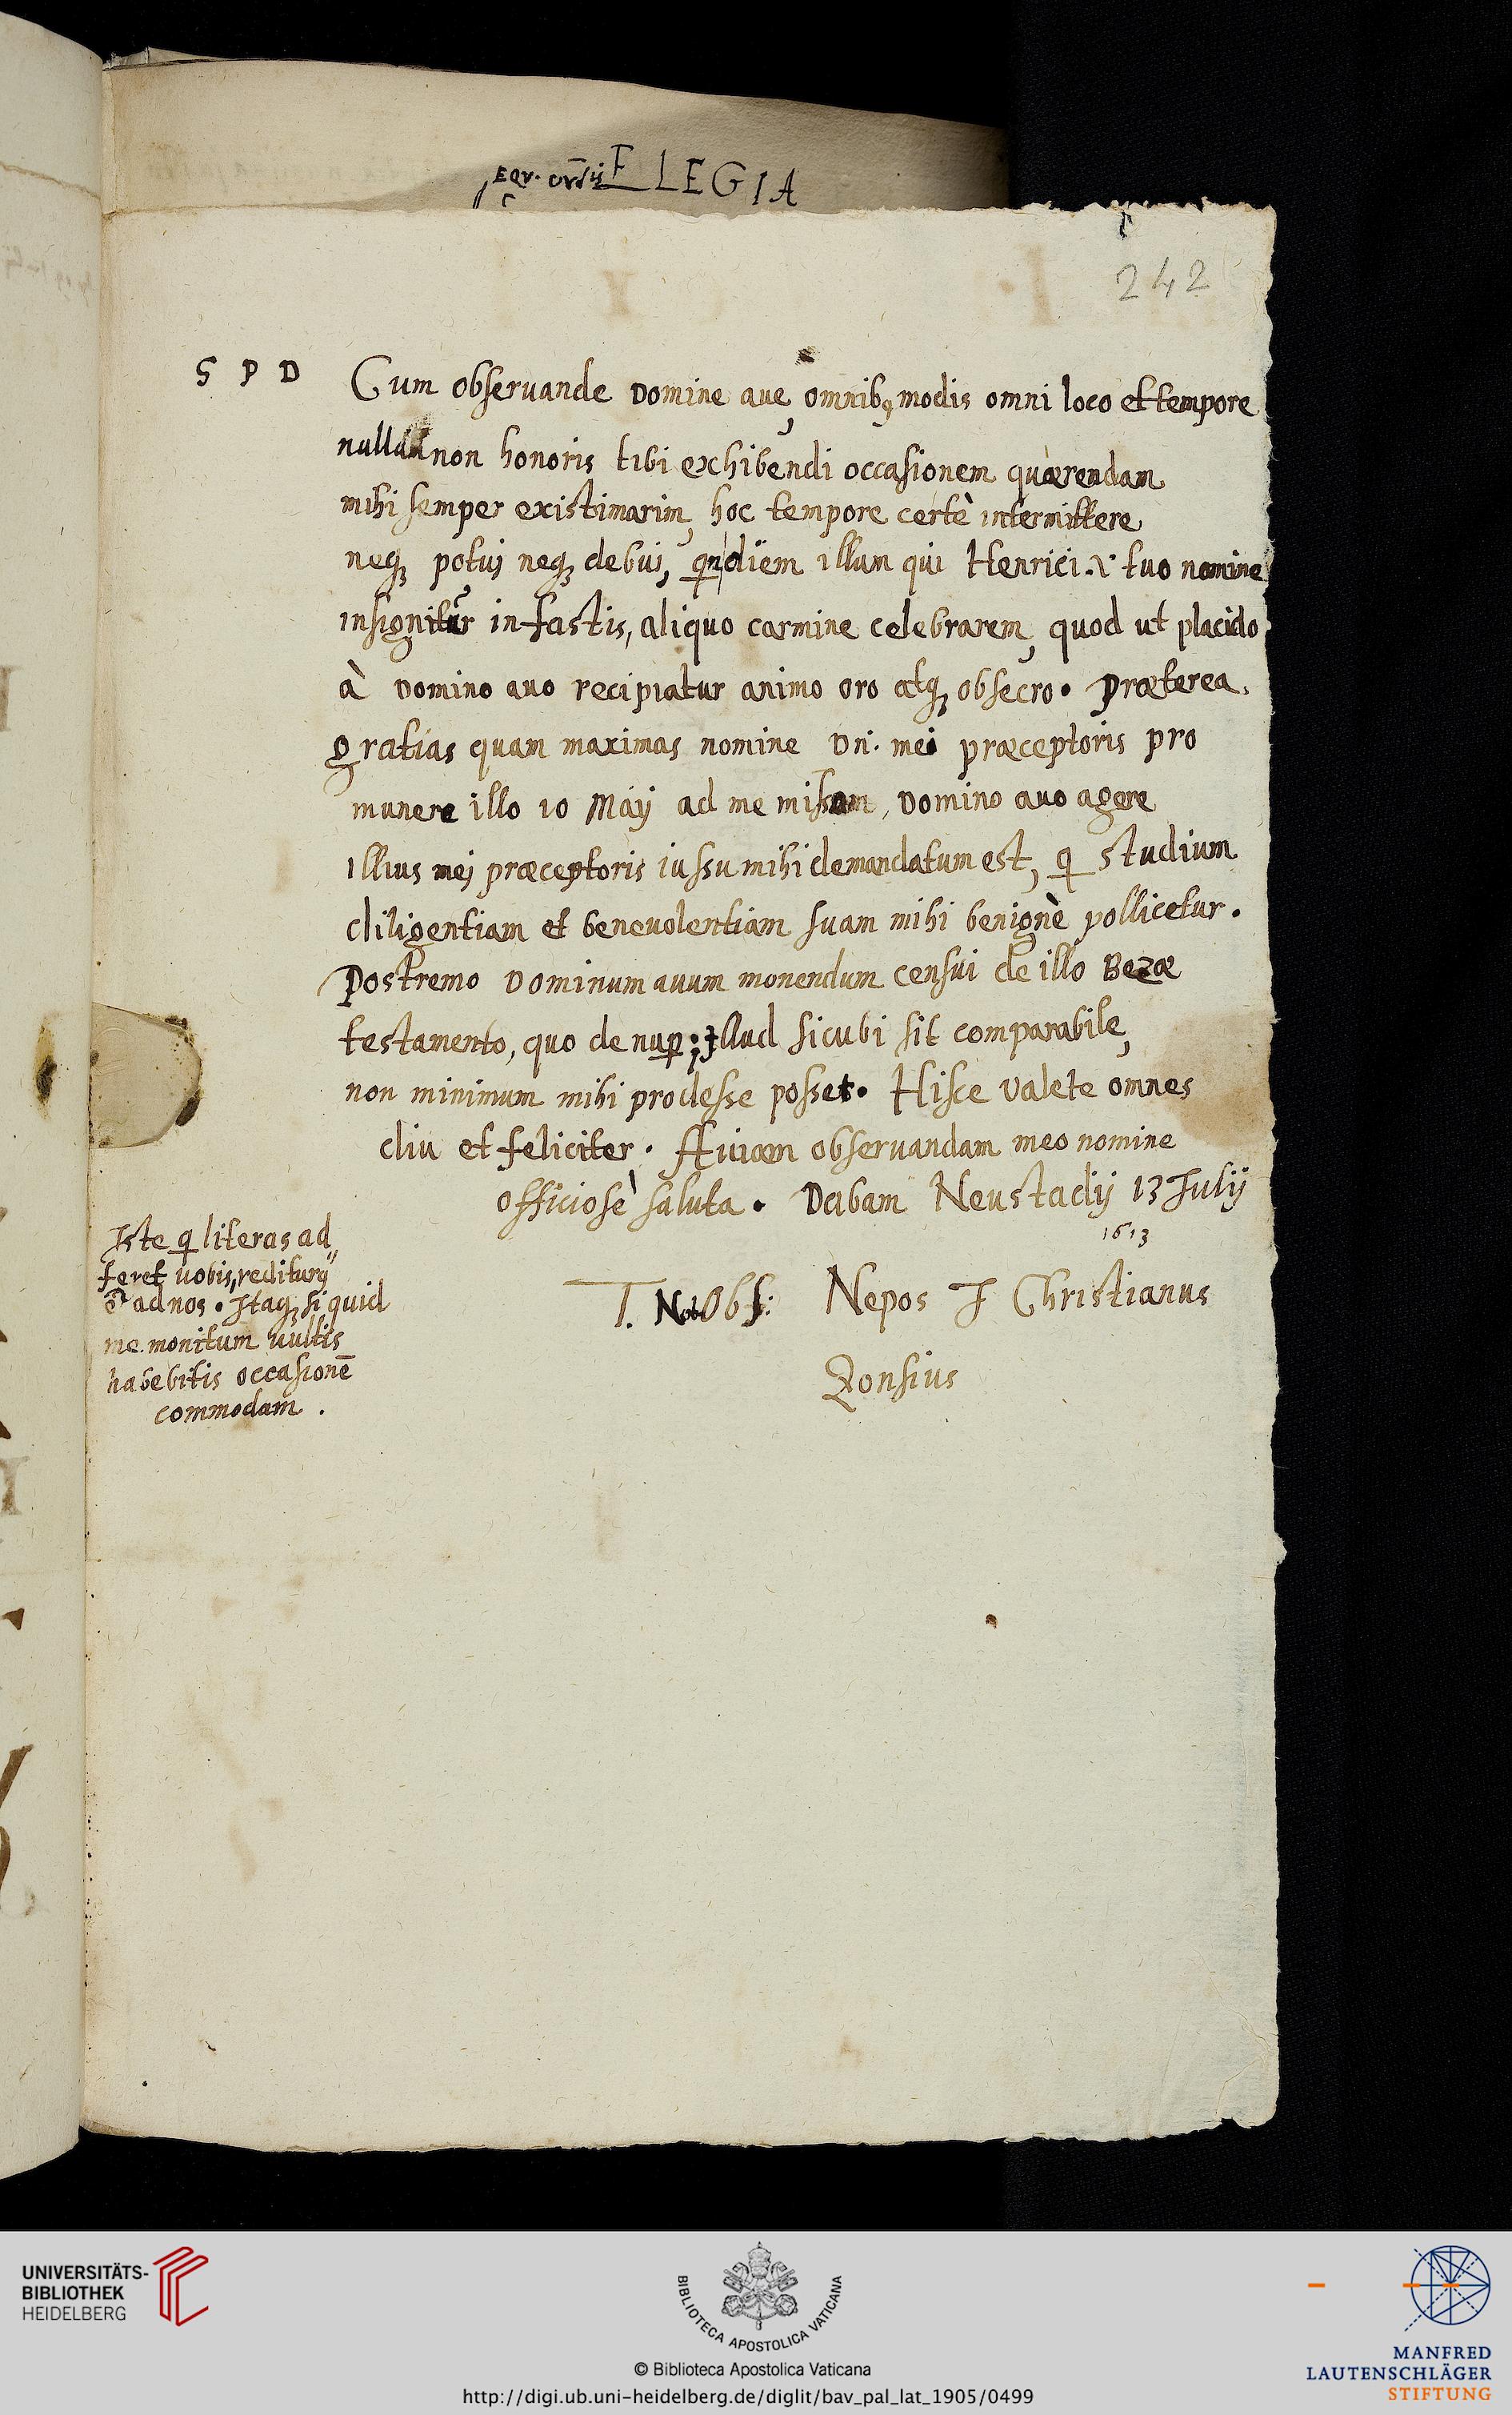 ELEGIA
242
S P D Cum obseruande Domine aue, omnibꝯ modis omni loco et tempore
nullam non honoris tibi exhibendi occasionem quærendam
mihi semper existimarim, hoc tempore certè intermittere
neqꝫ potui neqꝫ debui, diem illum qui Henrici tuo nomine
insignitur in fastis, aliquo carmine celebrarem, quod ut placido
à Domino auo recipiatur animo oro atqꝫ obsecro. Præterea
gratias quam maximas nomine Dn. mei præceptoris pro
munere illo 10 Maÿ ad me , Domino auo agere
illius mej præceptoris iussu mihi demandatum est, q studium
diligentiam et beneuolentiam suam mihi benignè pollicetur.
Postremo Dominum auum monendum censui de illo Bezæ
testamento, quo de nuꝑ; Illud sicubi sit comparabile,
non minimum mihi prodesse posset. Hisce valete omnes
diu et feliciter. Auiam obseruandam meo nomine
officiosè saluta. Dabam Neustadij 13 Julij
1613
T. Obs: Nepos J Christianus
Zonsius
Iste q literas ad
feret uobis, rediturꝯ
ad nos. Itaqꝫ si quid
me monitum uultis
habebitis occasionē
commodam.
UNIVERSITÄTS-
BIBLIOTHEK
HEIDELBERG
BIBLIOTECA APOSTOLICA VATICANA
© Biblioteca Apostolica Vaticana
http://digi.ub.uni-heidelberg.de/diglit/bav_pal_lat_1905/0499
MANFRED
LAUTENSCHLÄGER
STIFTUNG